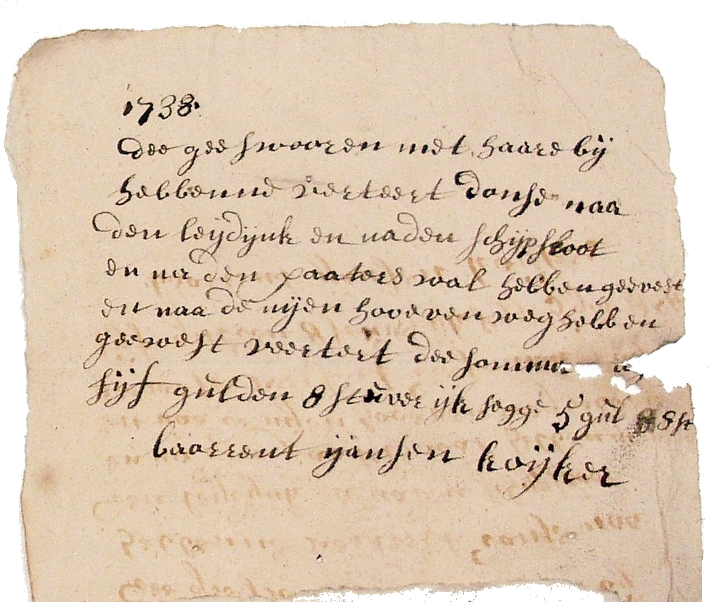 1738.
dee gee swooren met haare bij
hebbenne verteert donse naa
den leijdijnk en naden schijpsloot
en na den paaters wal hebben geevest
en naa de nijen hooeven weg hebben
geewest veertert dee somma
fijf gulden 8 stuver ijk segge 5 gul 8 st
baorrent ijansen koijker